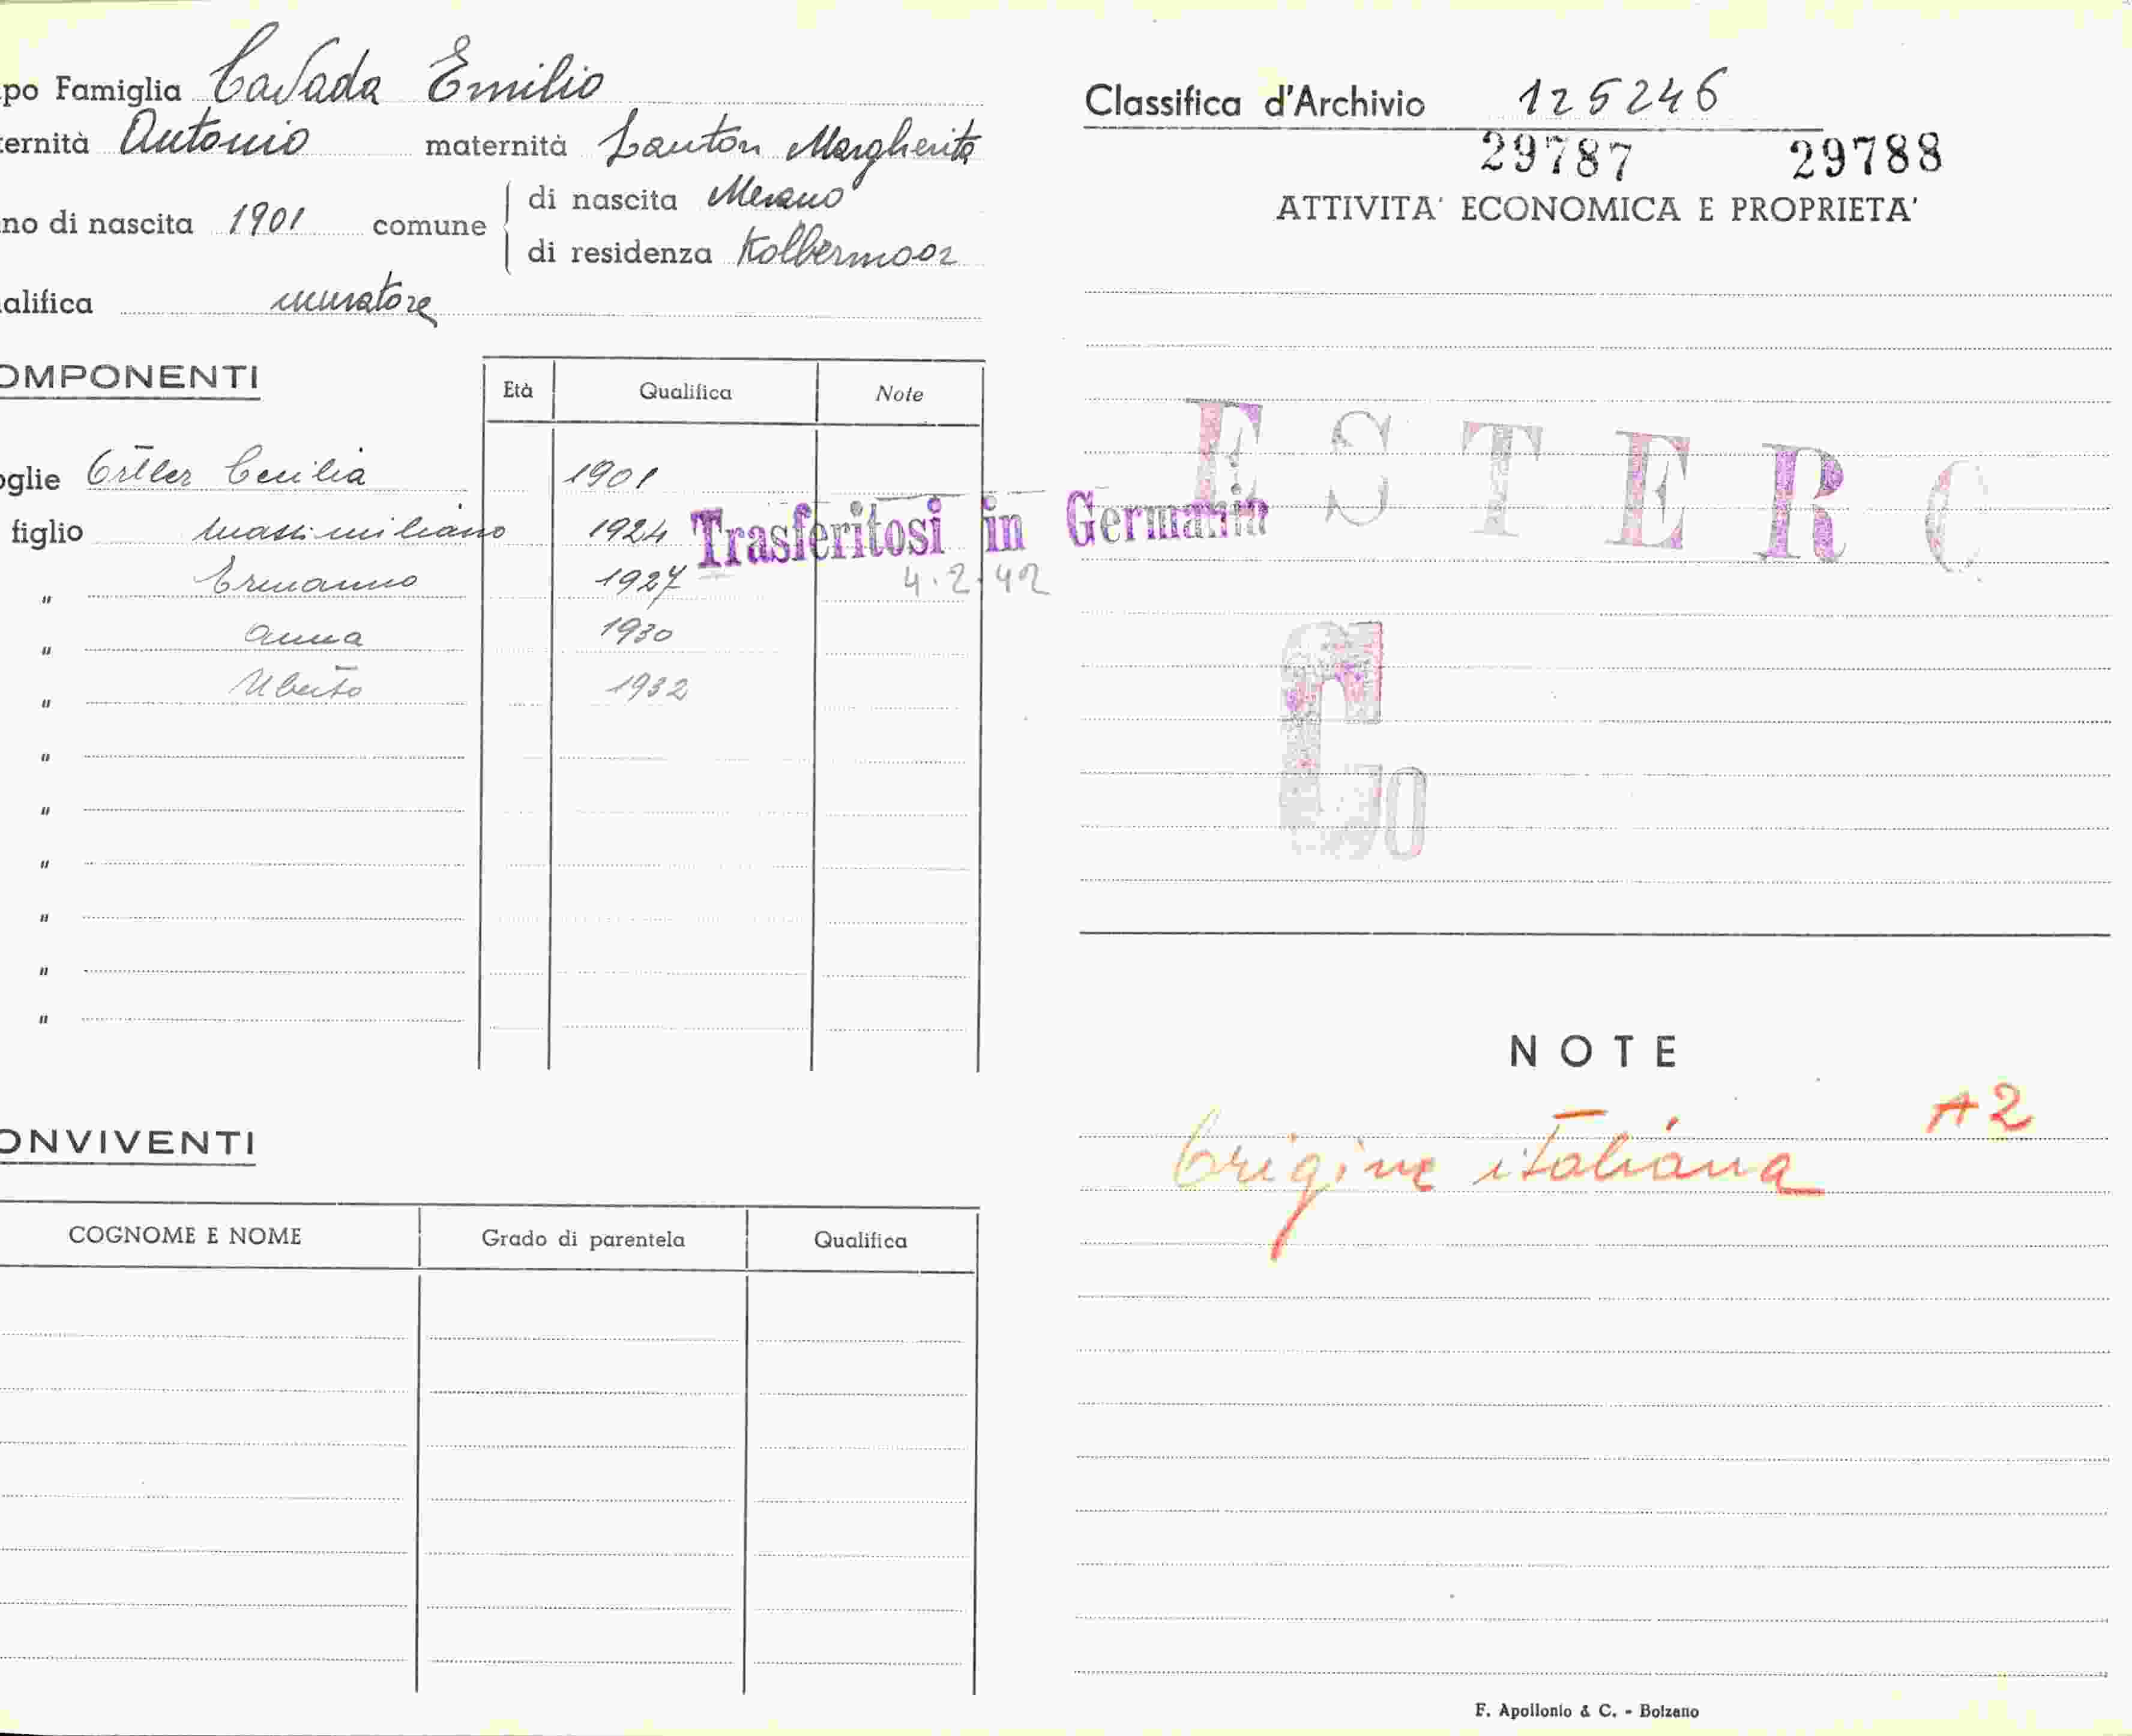 po Famiglia Casada Emilio
ernità Antonio maternità Lanton Margherita
no di nascita 1901 comune di nascita Merano
di residenza Kolbermoor
alifica muratore
OMPONENTI
Età Qualifica Note
oglie Ortler Cecilia 1901
figlio Massimiliano 1924
Trasferitosi in Germania
" Ermanno 1927
4.2.42
" Anna 1930
" Uberto 1932
"
"
"
"
"
"
ONVIVENTI
COGNOME E NOME Grado di parentela Qualifica
Classifica d'Archivio 125246
29787 29788
ATTIVITA' ECONOMICA E PROPRIETA'
ESTERO
G
0
NOTE
A2
Origine italiana
F. Apollonio & C. - Bolzano